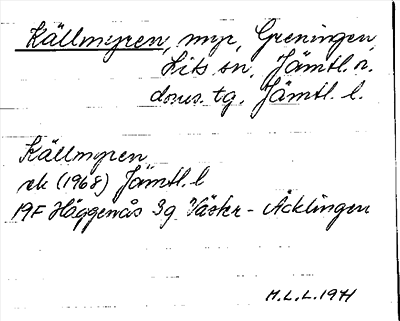 Källmyren, myr, Greningen,
Lits sn, Jämtl. n.
doms. tg, Jämtl. l.
Källmyren
ek (1968) Jämtl. l
19F Häggenås 3g Väster-Acklingen
M.L.L. 1971